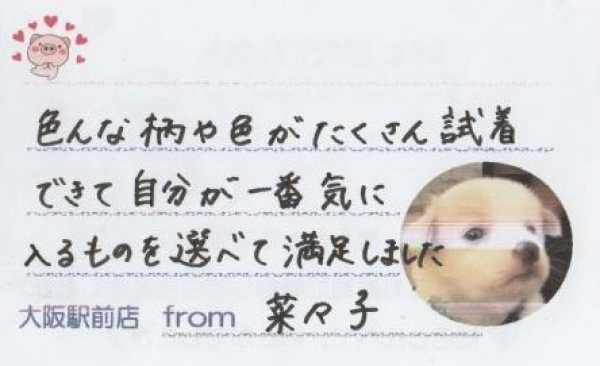 色んな柄や色がたくさん試着
できて自分が一番気に
入るものを選べて満足しました
大阪駅前店 from 菜々子